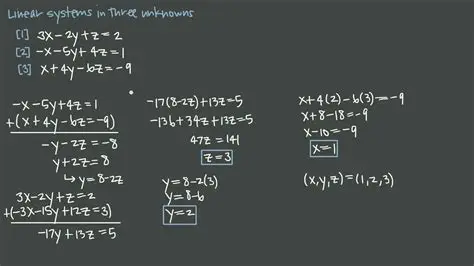 Linear systems in three unknowns
[1] 3x-2y+z=2
[2] -x-5y+4z=1
[3] x+4y-6z=-9
-x-5y+4z=1
+(x+4y-6z=-9)
-y-2z=-8
y+2z=8
↳ y=8-2z
3x-2y+z=2
+(-3x-15y+12z=3)
-17y+13z=5
-17(8-2z)+13z=5
-136+34z+13z=5
47z=141
z=3
y=8-2(3)
y=8-6
y=2
x+4(2)-6(3)=-9
x+8-18=-9
x-10=-9
x=1
(x,y,z)=(1,2,3)